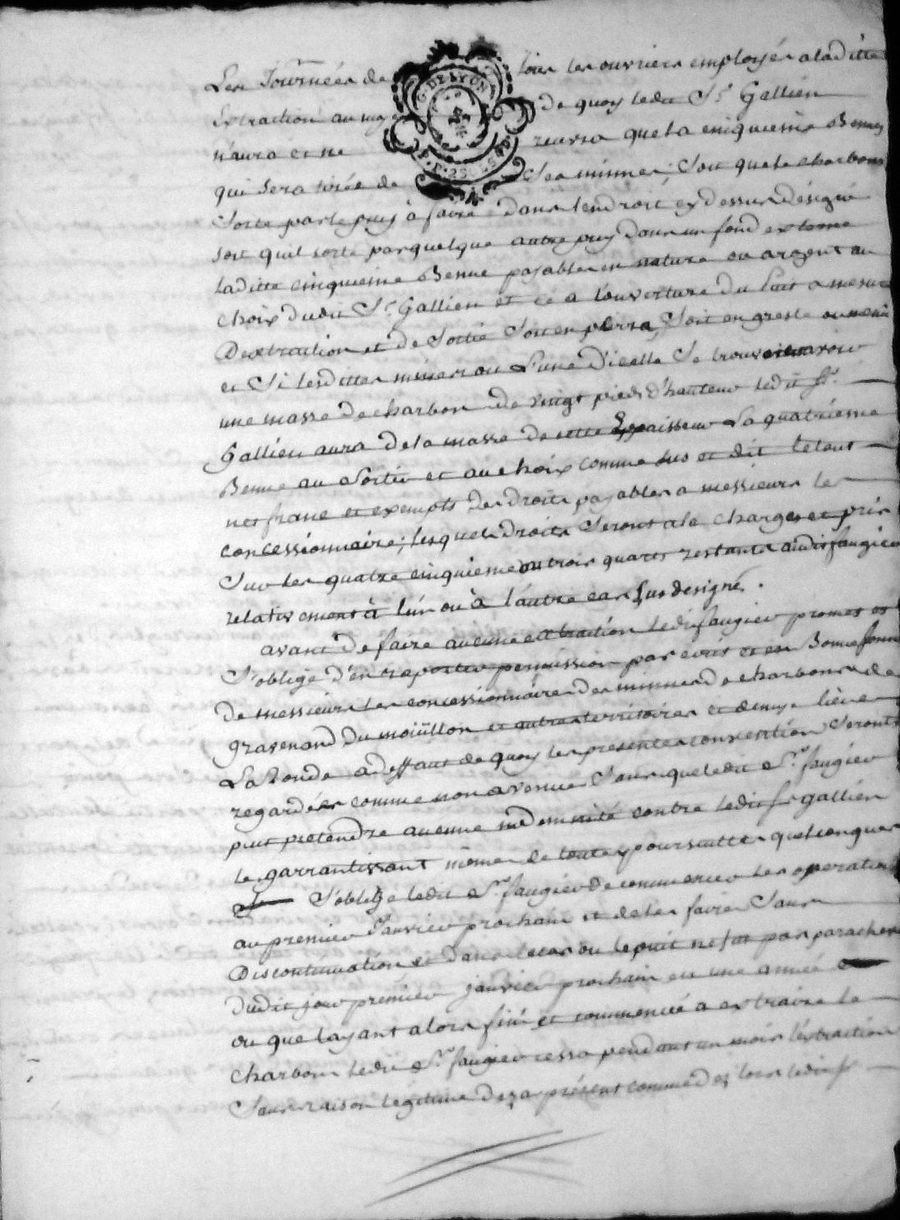 Les Journées de tous les ouvriers employés a laditte
Extraction au moy de quoy ledit Sr. Gallien
n'aura et ne recevra que la cinquieme Benne
qui sera tirée de ses minnes, Soit que le charbon
Sorte par le puy à faire dans l'endroit cy dessus désigné
soit quil sorte par quelque autre puy dans un fond externe
laditte cinquieme Benne payable en nature ou argent au
choix dudit Sr. Gallien et ce a l'ouverture du Puit a mesure
D'extraction et de Sortie Soit en perra, Soit en gresle ou menu
et Si lesdittes minnes ou L'une D'icelle Se trouvoient avoir
une masse de charbon de vingt pieds d'hauteur ledit Sr.
Gallien aura de la masse de cette Eppaisseur La quatrième
Benne au Sortir et au choix comme sus et dit le tout
net franc et exempts de droits payables a messieurs les
concessionnaires, lesquels droits Seront a la charge et pris
Sur les quatre cinquieme ou trois quarts restants audit faugier
relativement à l'un ou à l'autre cas sus designé.
avant de faire aucune extraction ledit faugier promet et
S'oblige d'en rapporter permission par ecrit et en Bonne forme
de messieurs les concessionnaires des minnes de charbons de
gravenand du mouillon et autres territoires et demye lieue
La Ronde a deffaut de quoy les presentes convention Seront
regardées comme non avenue Sans que ledit Sr. faugier
puit pretendre aucune indemnité contre ledit Sr. gallien
le garrantissant même de toutes poursuittes quelconques
S'oblige ledit Sr. faugier de commencer les operations
au premier Janvier prochain et de les faire Sans
Discontinuation et dans le cas ou le puit ne fut pas parachevé
dudit jour premier janvier prochain en une année
ou que layant alors fini et commencé a extraire le
charbon ledit Sr. faugier cessa pendant un mois l'extraction
Sans raison legitime dez a présent comme dez lors ledit Sr.
G. DE LYON